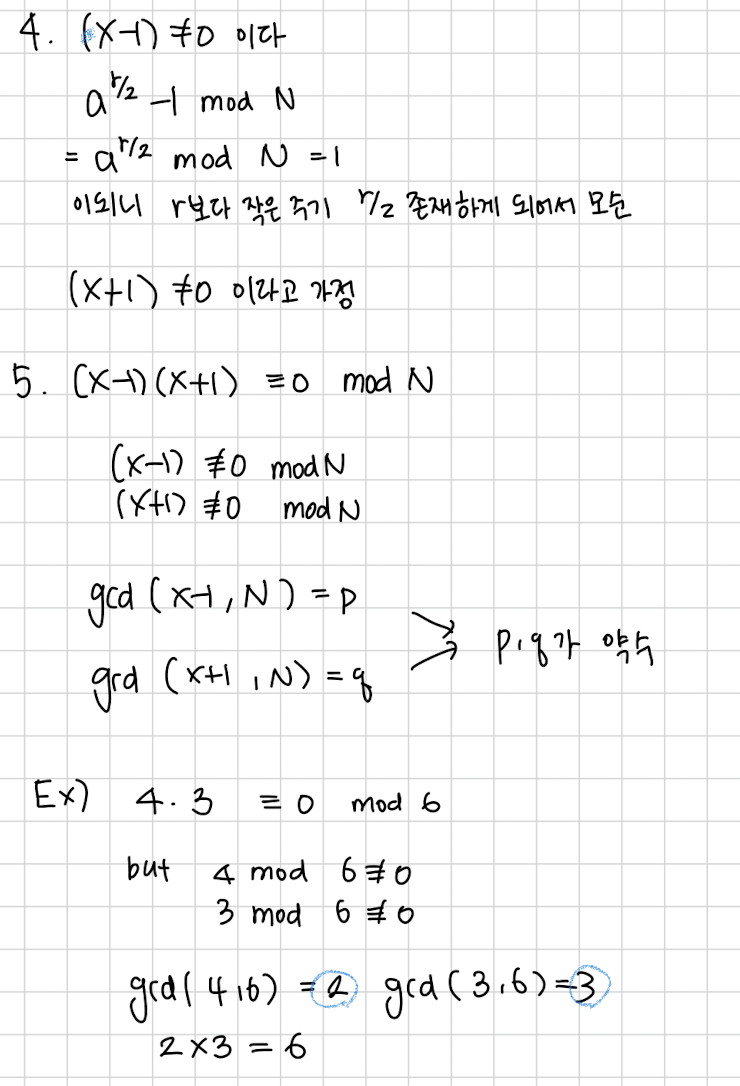 4. (x-1) ≠0 이다
a^r/2 -1 mod N
= a^r/2 mod N =1
이되니 r보다 작은 주기 r/2 존재하게 되어서 모순
(x+1) ≠0 이라고 가정
5. (x-1)(x+1) ≡0 mod N
(x-1) ≢0 mod N
(x+1) ≢0 mod N
gcd (x-1, N) = p
gcd (x+1, N) = q
p, q가 약수
Ex) 4·3 ≡ 0 mod 6
but 4 mod 6 ≢0
3 mod 6 ≢0
gcd(4,6) =2 gcd(3,6)=3
2×3 = 6